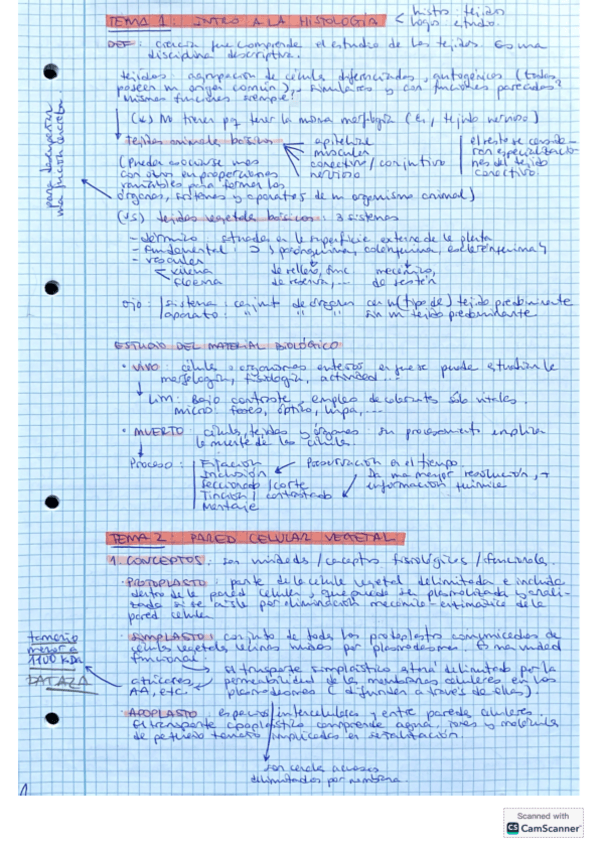 TEMA 1: INTRO A LA HISTOLOGÍA
histos: tejidos
logos: estudio.
DEF: ciencia que comprende el estudio de los tejidos. Es una
disciplina descriptiva.
tejidos: agrupación de células diferenciadas, (todas
poseen un origen común), similares y con funciones parecidas?
mismas funciones siempre!
(*) No tienen por tener la misma morfología (ej, tejido nervioso)
tejidos animales básicos
epitelial
muscular
conectivo/conjuntivo
nervioso
el resto se consideran especializaciones del tejido
conectivo.
(Pueden asociarse unos
con otros en proporciones
variables para formar los
órganos, sistemas y aparatos de un organismo animal)
para desempeñar
una función concreta.
(VS) tejidos vegetales básicos: 3 sistemas
- dérmico: situadas en la superficie externa de la planta
- fundamental: parénquima, colénquima, esclerénquima
- vascular
xilema
floema
de relleno, func
de reserva,...
mecánico,
de sostén
ojo: sistema: conjunt de órganos con un (tipo de) tejido predominante
aparato: " " " sin un tejido predominante
ESTUDIO DEL MATERIAL BIOLÓGICO
· VIVO: células u organismos enteros en que se puede estudiar la
morfología, fisiología, actividad...
LIM: Bajo contraste, empleo de colorantes sólo vitales.
micro: fases, óptico, lupa,...
· MUERTO: células, tejidos y órganos: su procesamiento implica
la muerte de las células.
Proceso:
Fijación
Inclusión
Seccionado/corte
Tinción/contrastado
Montaje
Preservación en el tiempo
Da una mayor resolución, +
información química
TEMA 2: PARED CELULAR VEGETAL
1. CONCEPTOS: son unidades/conceptos fisiológicos/funcionales.
· PROTOPLASTO: parte de la célula vegetal delimitada e incluida
dentro de la pared celular, que puede ser plasmolizada y
si se aísla por eliminación mecánico-enzimática de la
pared celular
· SIMPLASTO: conjunto de todos los protoplastos comunicados de
células vegetales vecinas unidas por plasmodesmos. Es una unidad
funcional
tamaño
menor a
1100 kDa
PATAZA
azúcares,
AA, etc.
El transporte simplástico estará delimitado por la
permeabilidad de las membranas celulares en los
plasmodesmos (difunden a través de ellas).
· APOPLASTO: espacios intercelulares y entre paredes celulares.
El transporte apoplástico comprende agua, iones y moléculas
de pequeño tamaño implicadas en señalización.
delimitados por membrana.
1
Scanned with
CS CamScanner